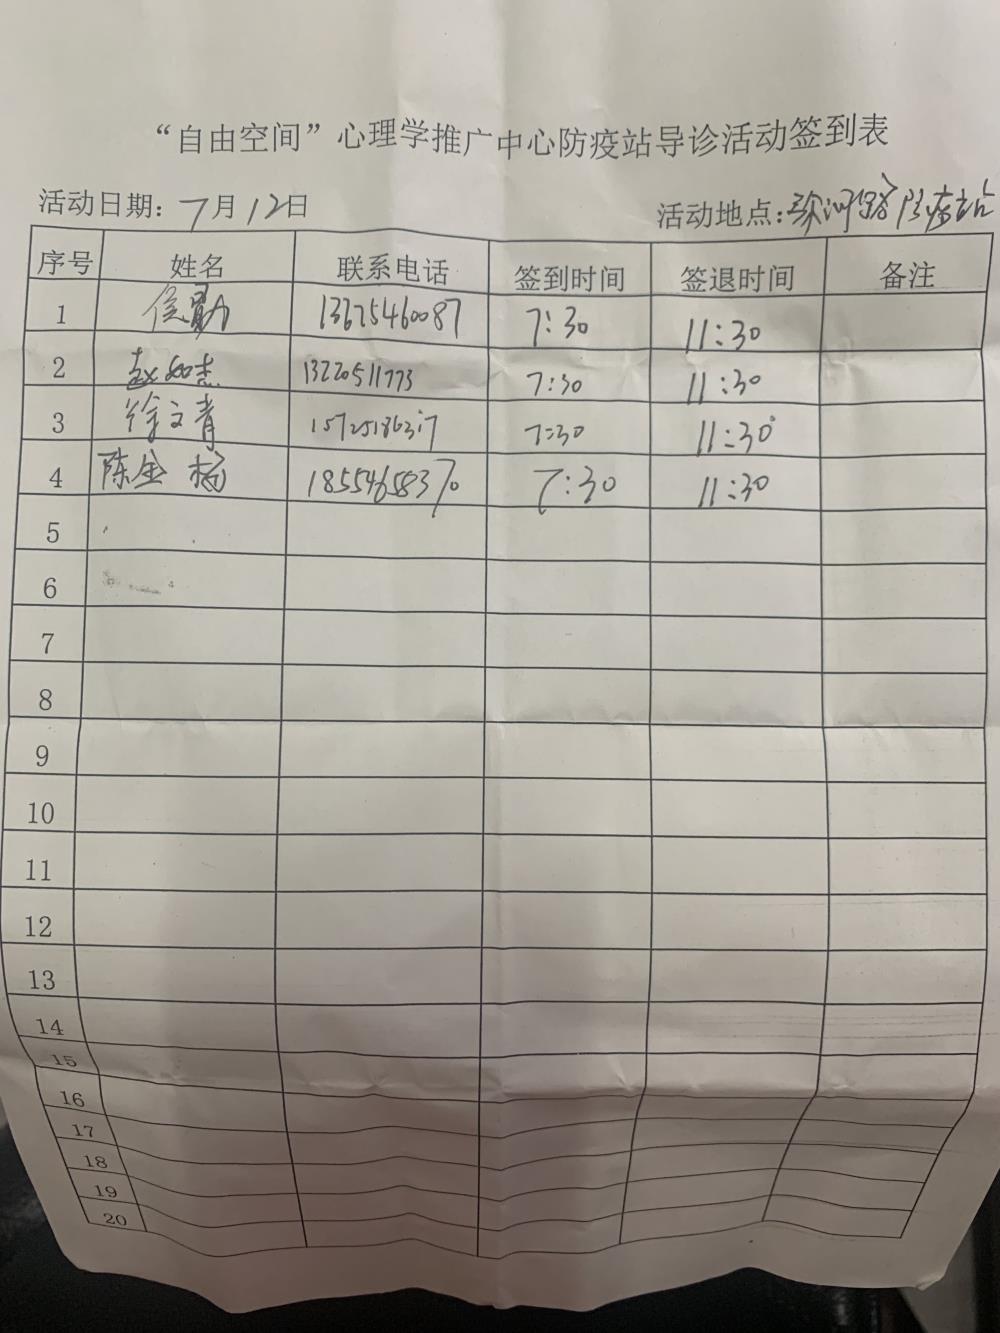 “自由空间”心理学推广中心防疫站导诊活动签到表
活动日期：7月12日 活动地点：
序号 姓名 联系电话 签到时间 签退时间 备注
1 侯勋 13675460087 7:30 11:30
2 赵如杰 13220511773 7:30 11:30
3 徐文青 7:30 11:30
4 陈金杨 18554658370 7:30 11:30
5
6
7
8
9
10
11
12
13
14
15
16
17
18
19
20